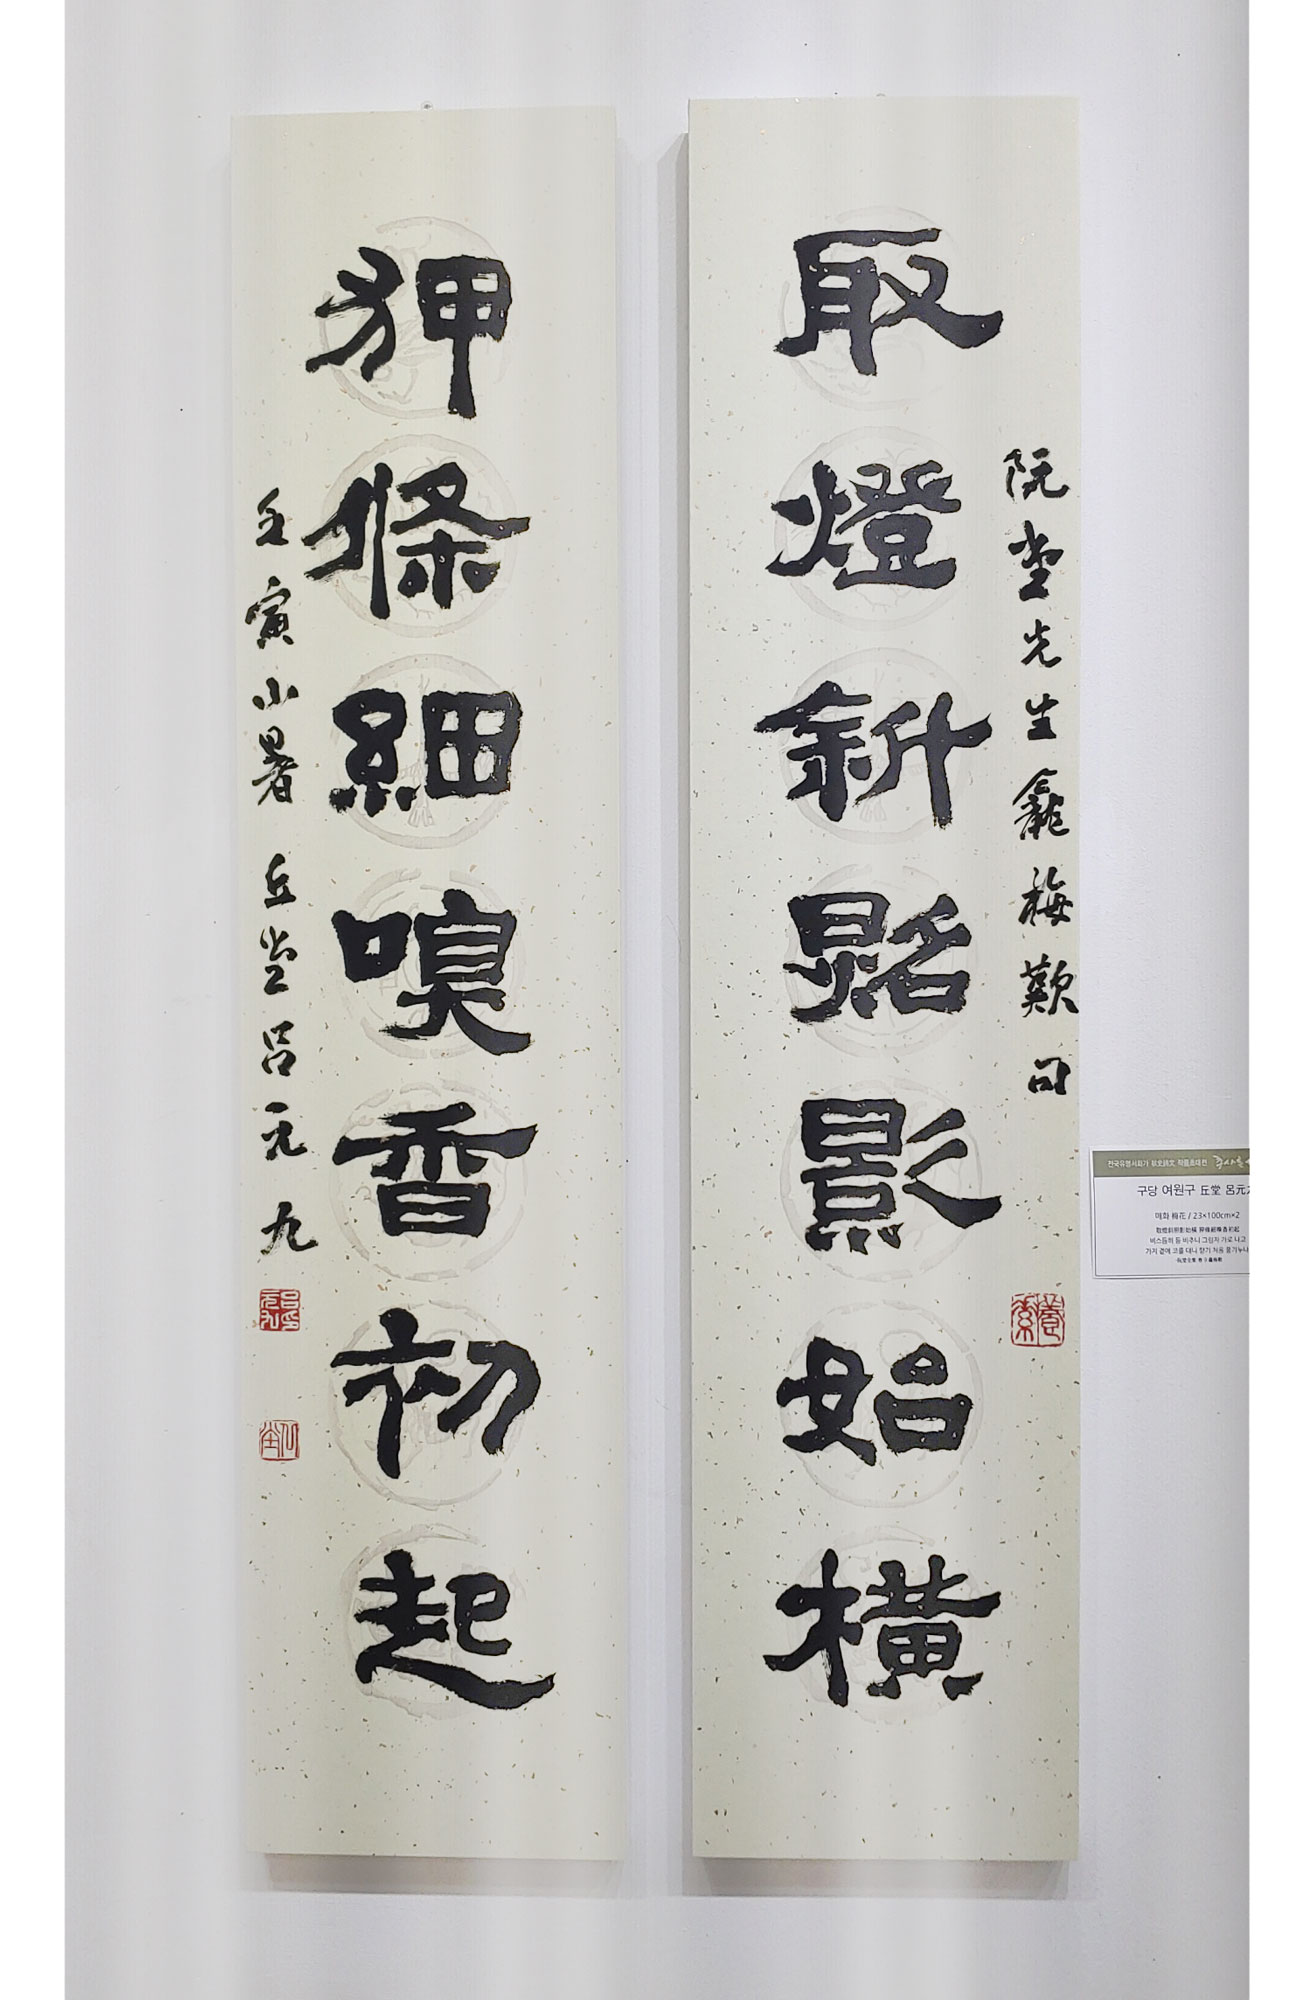 阮堂先生龕梅歎句
取燈斜照影始橫
狎條細嗅香初起
壬寅小暑 丘堂呂元九
養素
呂元九印
전국유명서화가 秋史詩文 작품초대전
구당 여원구 丘堂 呂元
매화 梅花 / 23×100cm×2
取燈斜照影始橫 狎條細嗅香初起
비스듬히 등 비추니 그림자 가로 나고
가지 곁에 코를 대니 향기 처음 풍기누나